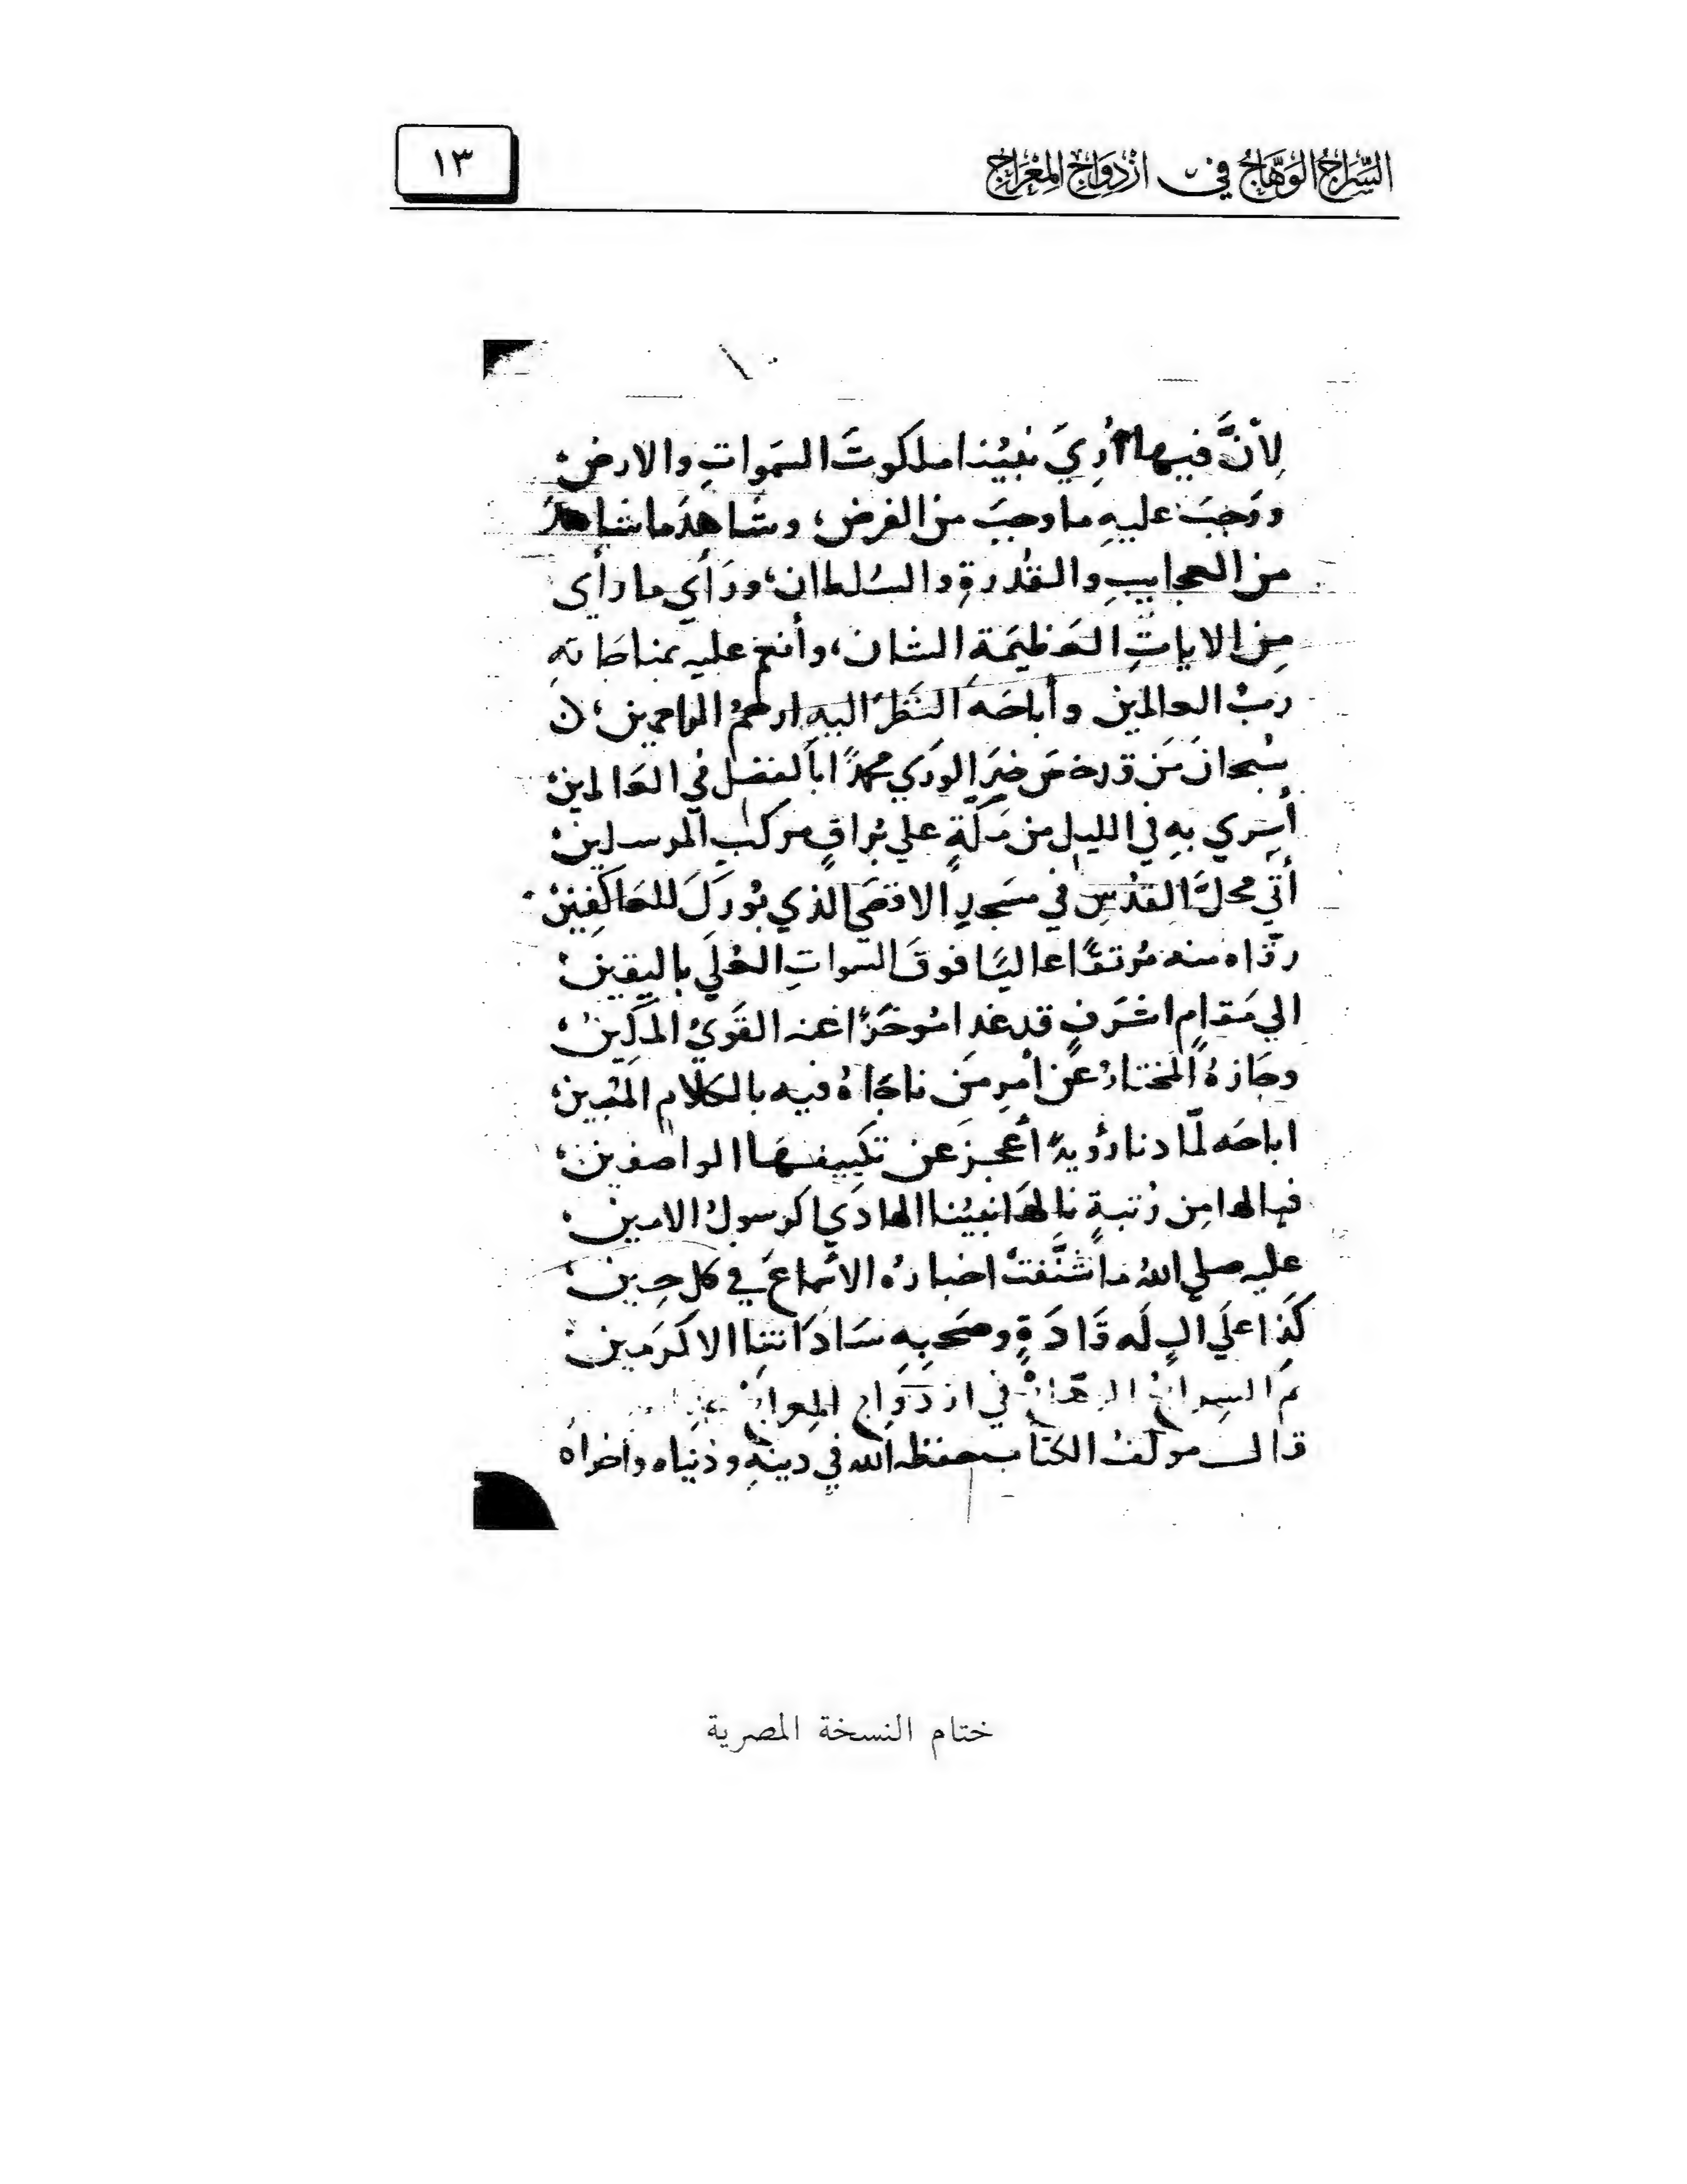 السِّرَاجُ الوَهَّاجُ في ازْدِوَاجِ المِعْرَاجِ
١٣
لِأنَّ فيها أُرِيَ نبيُنا ملكوتَ السَمواتِ والارض؛
ووَجبَ عليهِ ما وجبَ من الفرض؛ وشَاهدَ ما شاهدَ
من العجايبِ والقُدرةِ والسُلطان؛ ورَأي ما رأى
مِن الاياتِ العَظيمَةِ الشان؛ وأنعم عليه بمناجاته
ربُ العالمين وأباحَه النَظرَ اليهِ ارحمُ الراحمين؛
سُبحانَ مَن خيرَ الورَي محمدًا ابا الفضل في العَالمين؛
أسري بهِ في الليل من مَكَّةٍ علي بُراقٍ مركبِ المرسلين؛
أتي محلَّ القدُسِ في مسَجدِ الاقصَي الذي بُورِكَ للعَاكفِين؛
رقاه منه مُرتقًا عاليًا فوقَ السمواتِ العُلَي باليقين؛
الي مَقامٍ اشرَفٍ قد غدا مُوخَرًا عنه القَويُ المَكِين؛
وجَازهُ المختارُ عَن أمرِ مَن ناجَاهُ فيه بالكلامِ المُبين؛
اباحَه لمَّا دنا رؤيةً أعجزَ عن تكييفهَا الواصفين؛
فيالها مِن رُتبةٍ نالهَا نبيُنا الهادَي الرسولُ الامين؛
عليه صلي اللهُ ما شنَّفتْ اخبارُه الاسْماعَ في كل حِين؛
كَذا علَي الٍ لَه قَادَةٍ وصَحبِهِ سَادَاتنِا الاكرَمين؛
تم السراج الوهاج في ازدواج المعراج
قال مولفُ الكتاب حفظه الله في دينهِ ودُنياه وأخراه
ختام النسخة المصرية